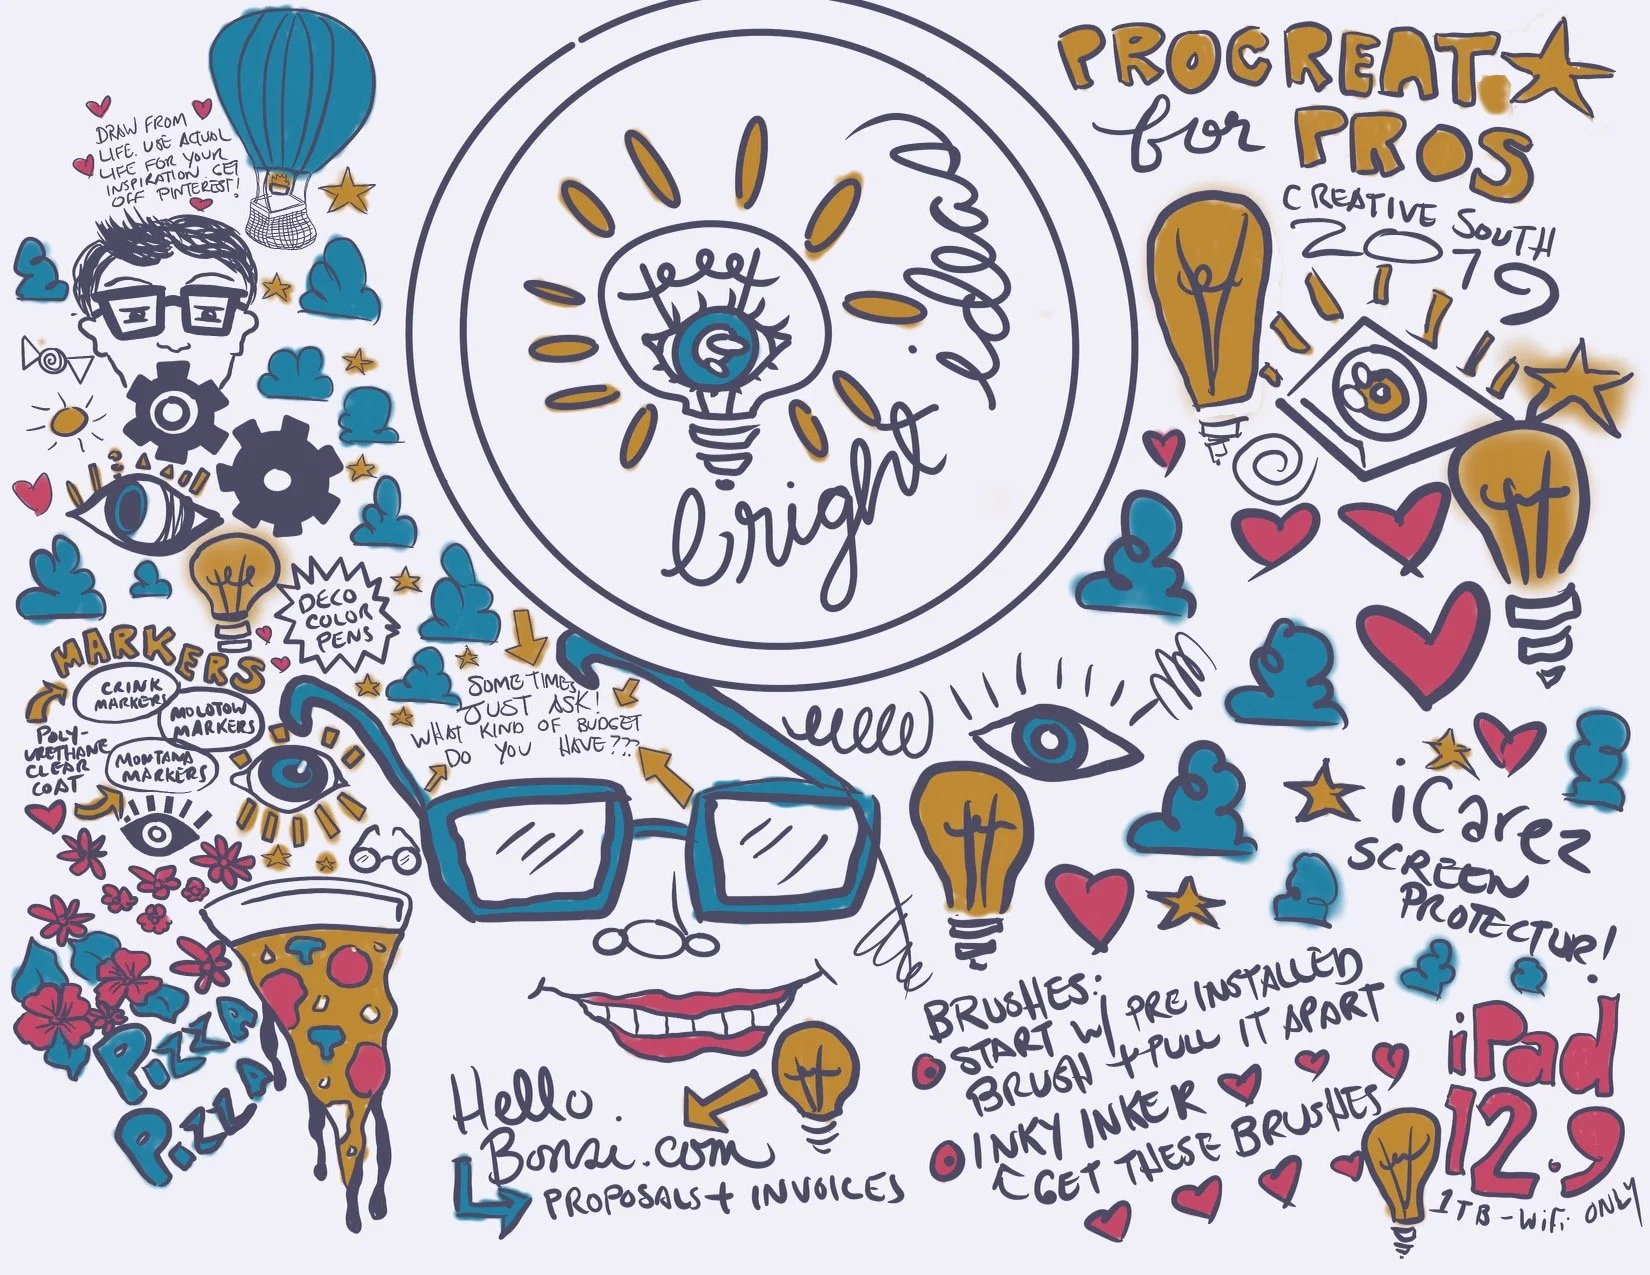 PROCREAT
for PROS
CREATIVE SOUTH
2019
DRAW FROM
LIFE. USE ACTUAL
LIFE FOR YOUR
INSPIRATION. GET
OFF PINTEREST!
bright ideas
DECO
COLOR
PENS
MARKERS
CRINK
MARKERS
MOLOTOW
MARKERS
MONTANA
MARKERS
POLY-
URETHANE
CLEAR
COAT
SOMETIMES
JUST ASK!
WHAT KIND OF BUDGET
DO YOU HAVE???
PIZZA
PIZZA
Hello.
Bonsai.com
PROPOSALS + INVOICES
iCarez
SCREEN
PROTECTUR!
BRUSHES:
START W/ PRE INSTALLED
BRUSH + PULL IT APART
INKY INKER
GET THESE BRUSHES
iPad
12.9
1TB - WiFi ONLY